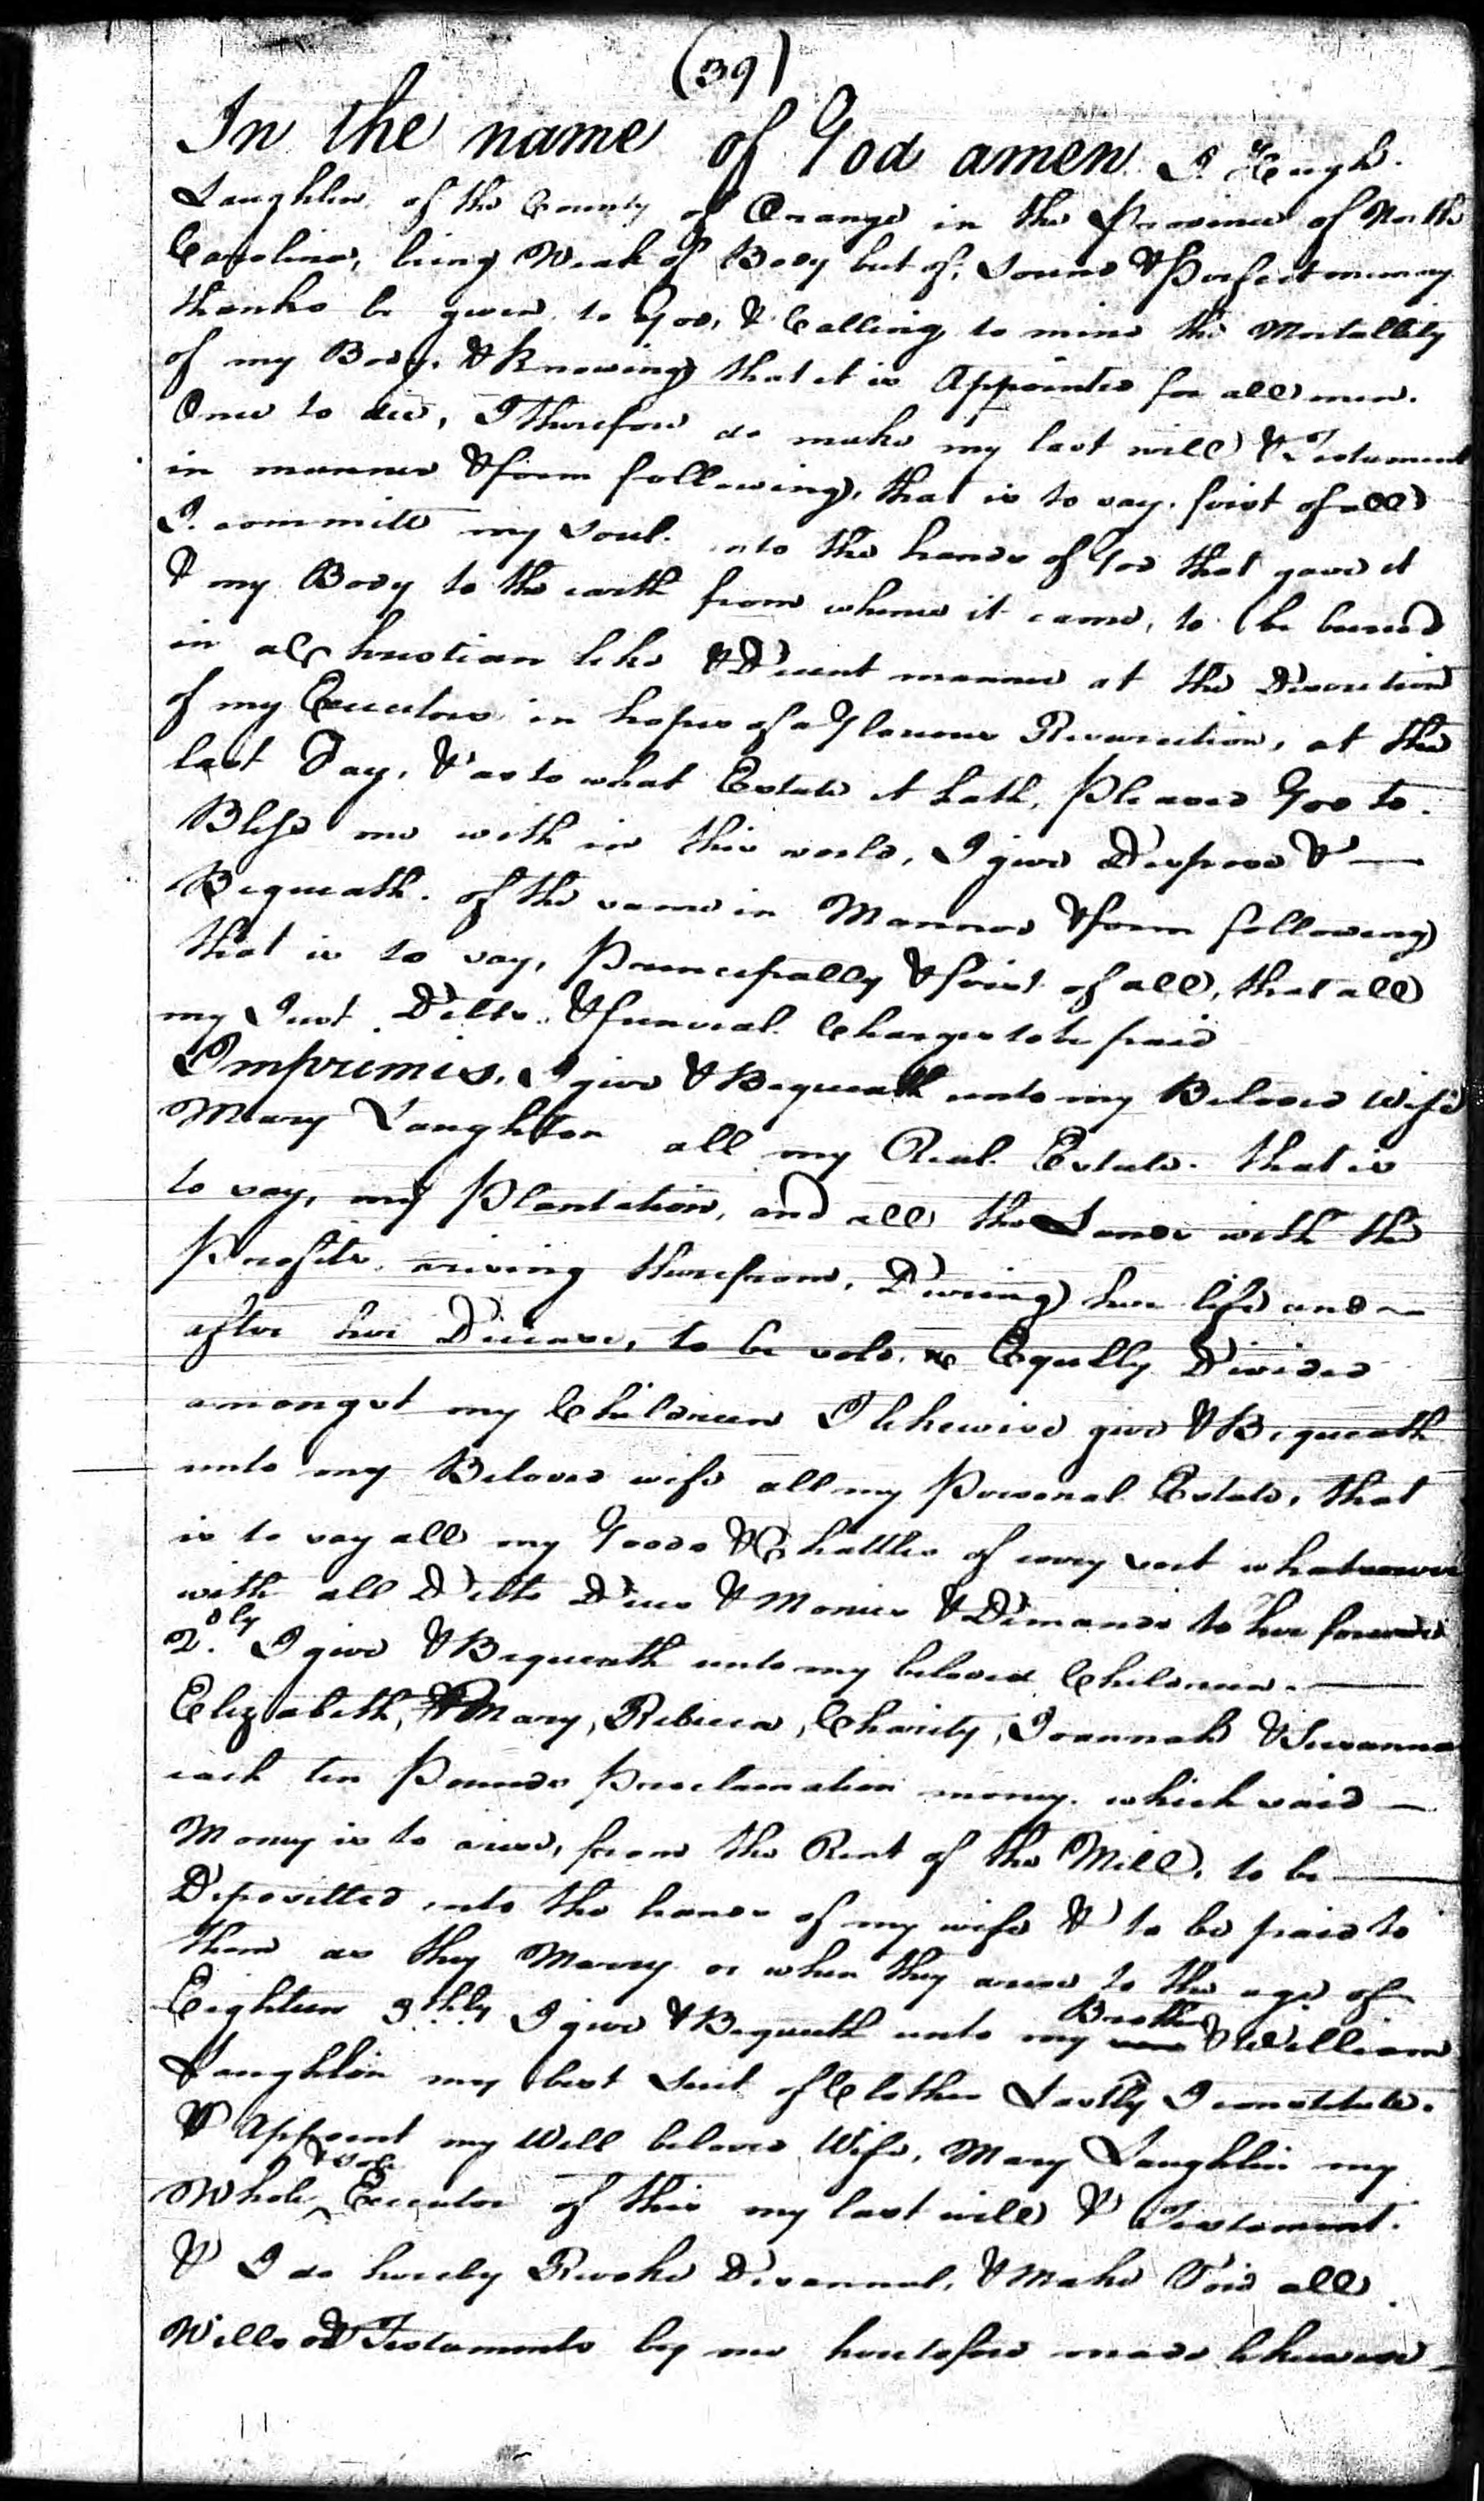 (39)
In the name of God amen. I Hugh
Laughlin of the County of Orange in the Province of North
Carolina, being Weak of Body but of Sound & Perfect memory
thanks be given to God, & Calling to mind the Mortallity
of my Body, & Knowing that it is Appointed for all men
Once to die, I therefore do make my last will & Testament
in manner & form following, that is to say. first of all
I. committ my Soul. into the hands of God that gave it
& my Body to the earth from whence it came, to be buried
in a Christian like & Decent manner at the Discretion
of my Executors in hopes of a Glorious Resurrection, at the
last Day, & as to what Estate it hath, Pleased God to
Bless me with in this world, I give Dispose & —
Bequeath. of the same in Manner & form following
that is to say, Principally & first of all, that all
my Just Debts. & funeral Charges to be paid
Imprimis. I give & Bequeath unto my Beloved Wife
Mary Laughlin all my Real Estate. that is
to say, my Plantation, and all the Lands with the
Profits arising therefrom, During her life and
after her Decease, to be sold. & Eqully Divided
amongst my Children I likewise give & Bequeath
unto my Beloved wife all my Personal Estate, that
is to say all my Goods & Chattles of every sort whatsoever
with all Debts Dues & Monies & Demands to her forever
2.dly I give & Bequeath unto my beloved Children. —
Elizabeth, & Mary, Rebecca, Charity, Joannah & Susanna
each ten Pounds Proclamation money. which said —
Money is to arise, from the Rent of the Mill, to be —
Depositted into the hands of my wife & to be paid to
them as they Marry or when they arive to the age of
Eighteen 3.thly I give & Bequeath unto my Brother William
Laughlin my best Suit of Clothes Lastly I constitute.
& Appoint my Well beloved Wife, Mary Laughlin my
Whole & Sole Executor of this my last will & Testament.
& I do hereby Revoke Disannul, & Make Void all
Wills & Testaments by me heretofore made likewise